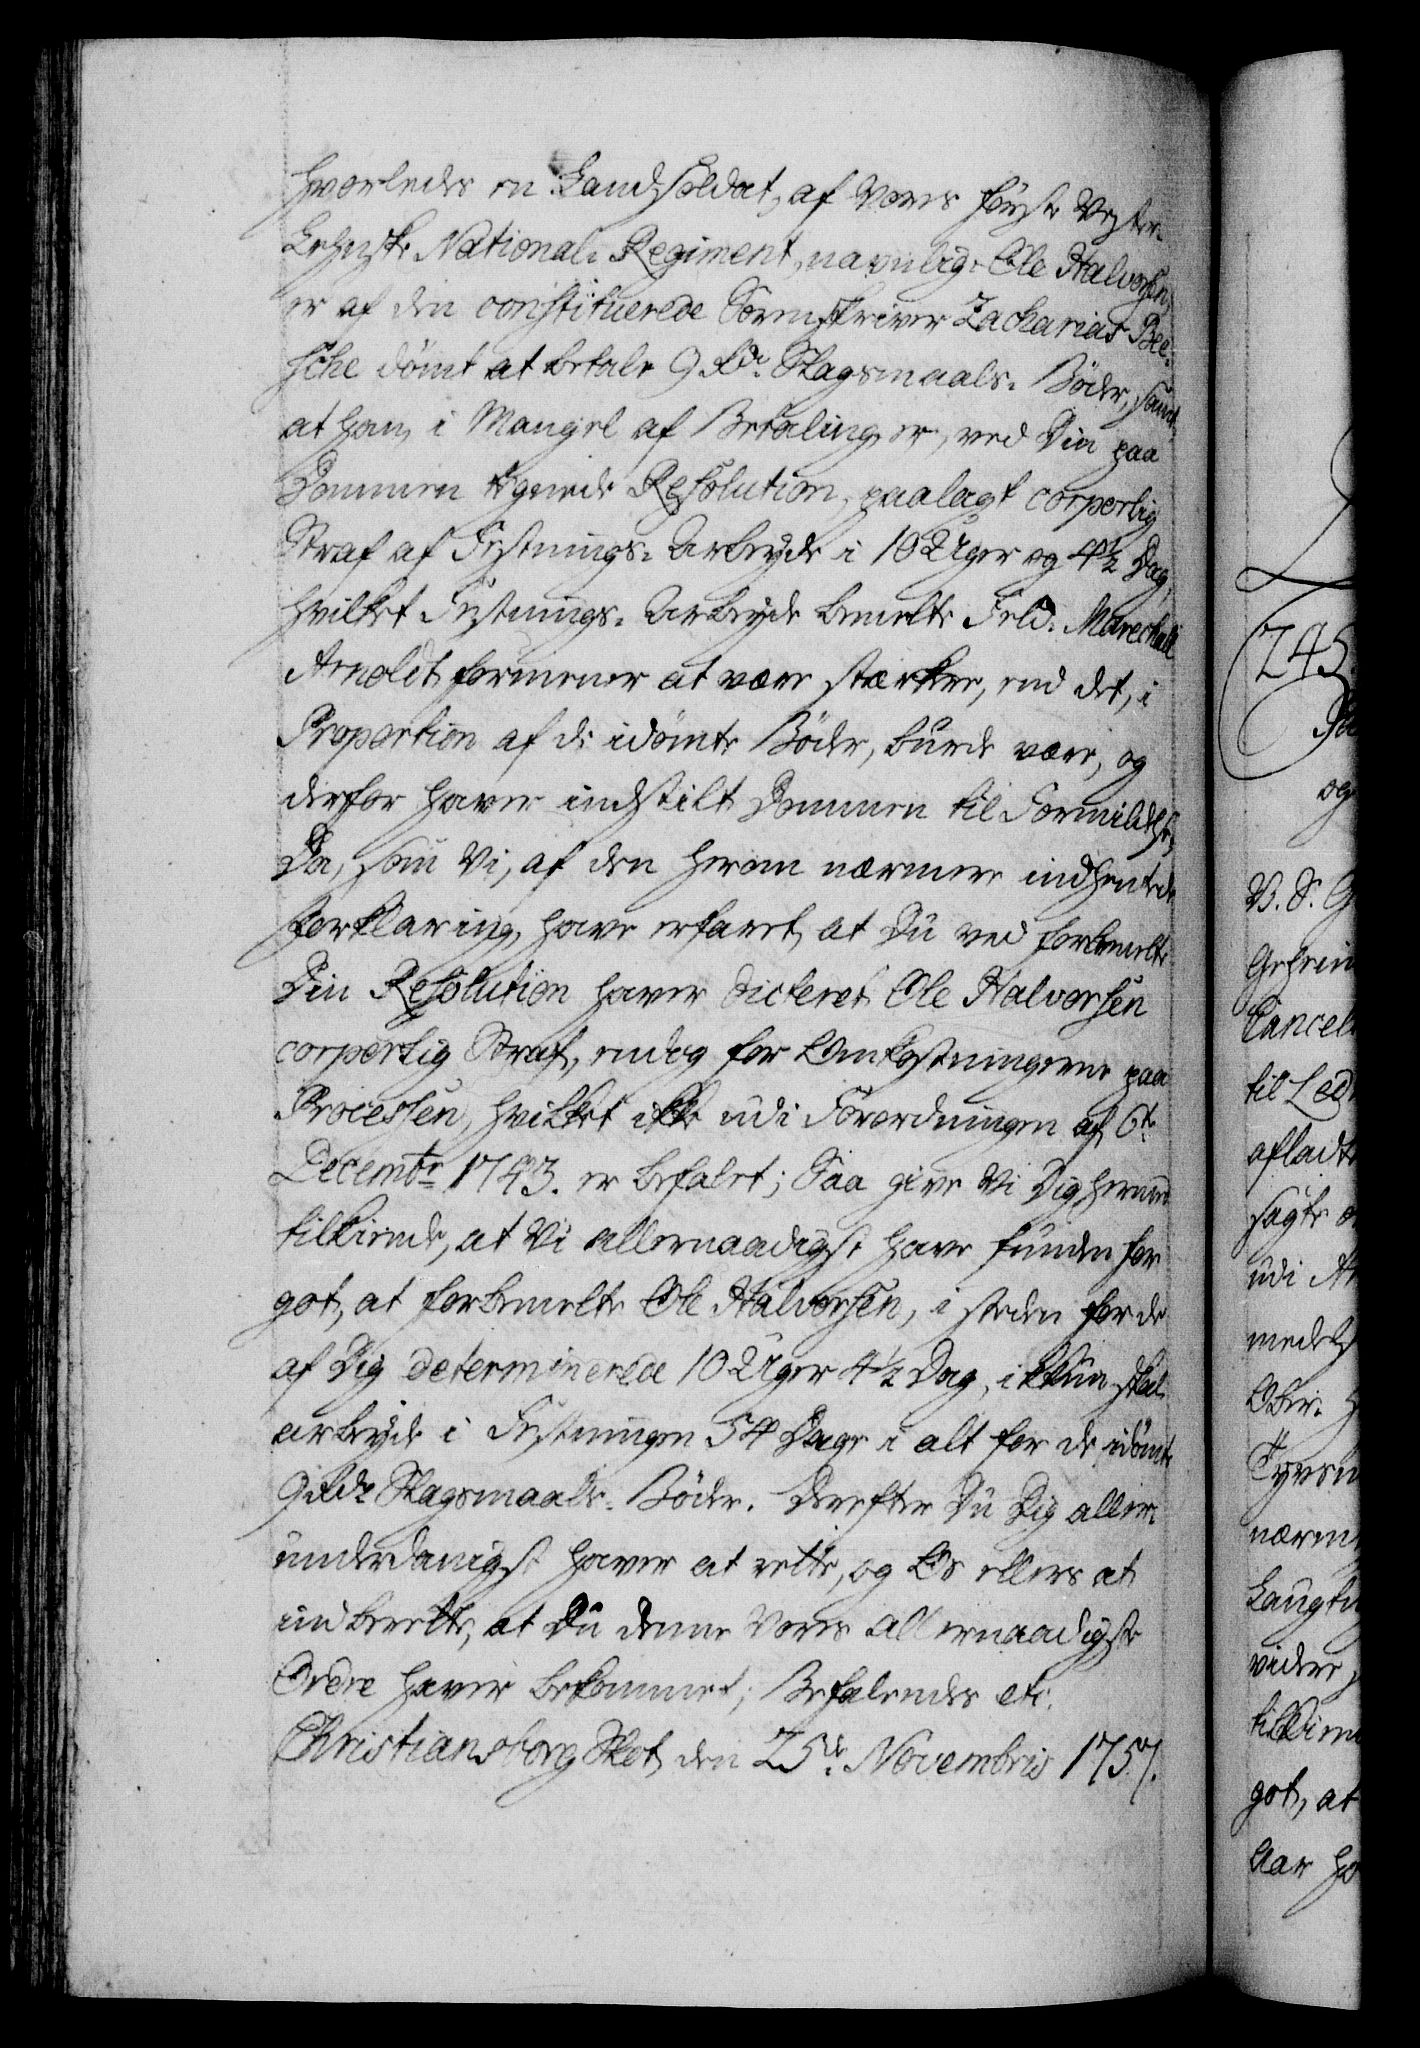 hvorledes en Landsoldat, af Vores første Vester-
Lehnske National-Regiment, navnlig: Ole Halvorsen,
er af den constituerede Sorenskriver Zacharias Bee-
sche dømt at betale 9 Rdr. Slagsmaals-Bøder, samt,
at han, i Mangel af Betaling, er, ved Din paa
Dommen tegnede Resolution, paalagt corporlig
Straf af Festnings-Arbeyde i 10 Uger og 4½ Dag,
hvilket Festnings-Arbeyde bemelte Feld-Marechall
Arnoldt formener at være stærkere, end det, i
Proportion af de idømte Bøder, burde være, og
derfor haver indstilt Dommen til Formildelse,
Da, som Vi, af den herom nærmere indhentede
Forklaring, have erfaret, at Du ved forbemelte
Din Resolution haver dicteret Ole Halvorsen
corporlig Straf, endog for Omkostningerne paa
Processen, hvilket ikke udi Forordningen af 6te
Decembr 1743. er befalet; Saa give Vi Dig hermed
tilkiende, at Vi allernaadigst have funden for
got, at forbemelte Ole Halvorsen, i steden for de
af Dig determinerede 10 Uger 4½ Dag, ikkun skal
arbeyde i Festningen 54 Dage i alt for de idømte
9 Rdr Slagsmaals-Bøder. Derefter Du Dig aller-
underdanigst haver at rette, og Os ellers at
indberette, at Du denne Vores allernaadigste
Ordre haver bekommet; Befalendes etc.
Christiansborg Slot den 25de Novembris 1757.
245.
og
V. S. G
Geheim
Cancel
til Led
afladte
sagte
udi A
meds
Ober-
Tyvsm
nærm
Laugti
videre
tilkiend
got, at
Aar ho